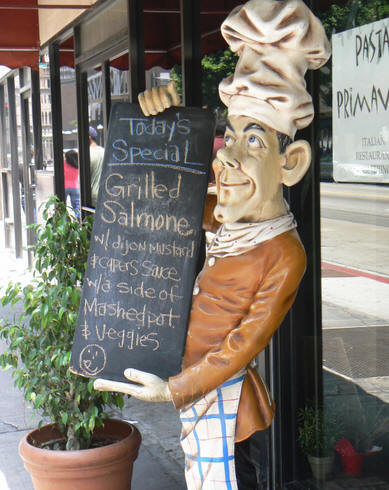 Today's
Special
Grilled
Salmone
w/ dijon mustard
& capers sauce
w/a side of
Mashed pot.
& Veggies
PASTA
PRIMAV
ITALIAN
RESTAURAN